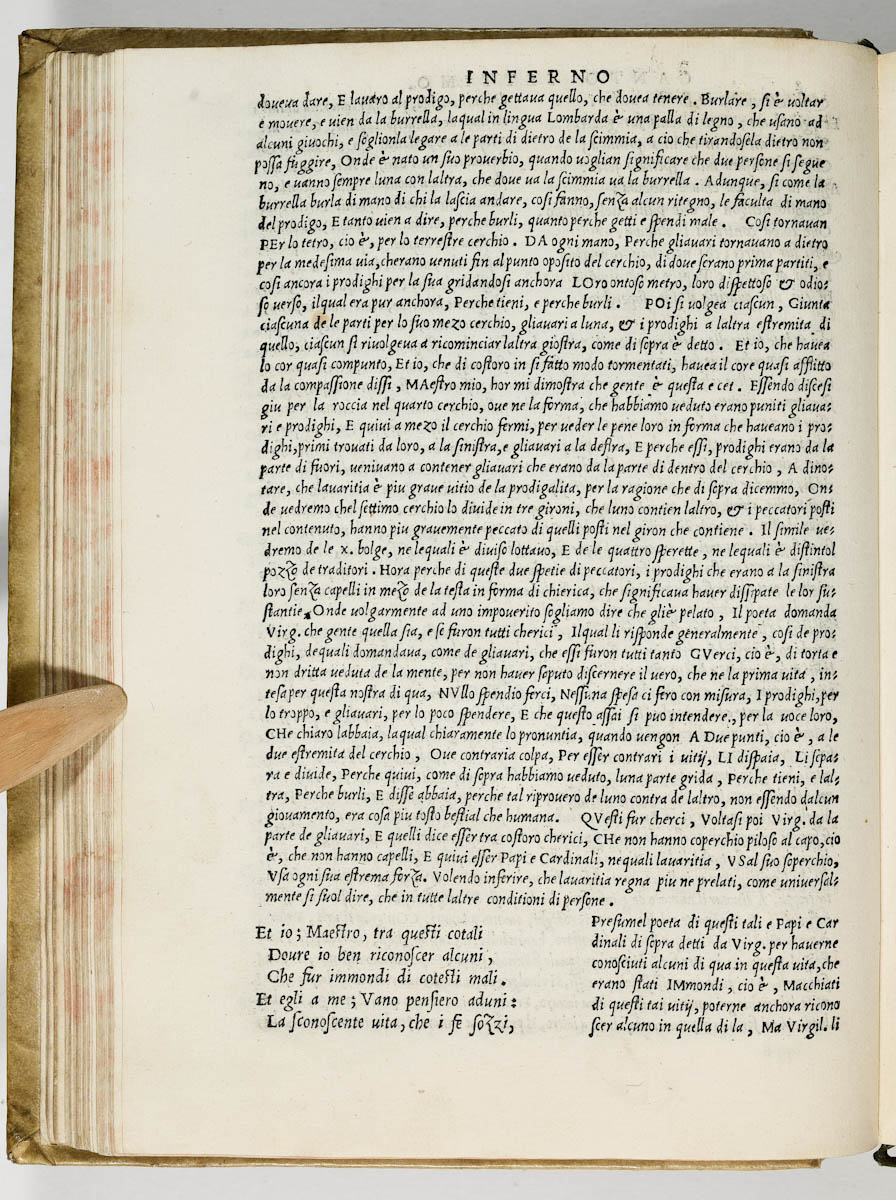 INFERNO
doveva dare, E lavaro al prodigo, perche gettava quello, che dovea tenere. Burlare, si è voltar
e movere, e vien da la burrella, laqual in lingua Lombarda è una palla di legno, che usano ad
alcuni giuochi, e soglionla legare a le parti di dietro de la scimmia, a cio che tirandosela dietro non
possa fuggire, Onde è nato un suo proverbio, quando voglian significare che due persone si segue
no, e vanno sempre luna con laltra, che dove va la scimmia va la burrella. Adunque, si come la
burrella burla di mano di chi la lascia andare, cosi fanno, senza alcun ritegno, le faculta di mano
del prodigo, E tanto vien a dire, perche burli, quanto perche getti e spendi male. Cosi tornavan
PEr lo tetro, cio è, per lo terrestre cerchio. DA ogni mano, Perche gliavari tornavano a dietro
per la medesima via, cherano venuti fin al punto oposito del cerchio, di dove serano prima partiti, e
cosi ancora i prodighi per la sua gridandosi anchora LOro ontoso metro, loro dispettoso & odio=
so verso, ilqual era pur anchora, Perche tieni, e perche burli. POi si volgea ciascun, Giunta
ciascuna de le parti per lo suo mezo cerchio, gliavari a luna, & i prodighi a laltra estremita di
quello, ciascun si rivolgeva a ricominciar laltra giostra, come di sopra è detto. Et io, che havea
lo cor quasi compunto, Et io, che di costoro in si fatto modo tormentati, havea il core quasi afflitto
da la compassione dissi, MAestro mio, hor mi dimostra che gente è questa e cet. Essendo discesi
giu per la roccia nel quarto cerchio, ove ne la forma, che habbiamo veduto erano puniti gliava=
ri e prodighi, E quivi a mezo il cerchio fermi, per veder le pene loro in forma che haveano i pro=
dighi, primi trovati da loro, a la sinistra, e gliavari a la destra, E perche essi, prodighi erano da la
parte di fuori, venivano a contener gliavari che erano da la parte di dentro del cerchio, A dino=
tare, che lavaritia è piu grave vitio de la prodigalita, per la ragione che di sopra dicemmo, On=
de vedremo chel settimo cerchio lo divide in tre gironi, che luno contien laltro, & i peccatori posti
nel contenuto, hanno piu gravemente peccato di quelli posti nel giron che contiene. Il simile ve=
dremo de le x. bolge, ne lequali è diviso lottavo, E de le quattro sperette, ne lequali è distintol
pozzo de traditori. Hora perche di queste due spetie di peccatori, i prodighi che erano a la sinistra
loro senza capelli in mezo de la testa in forma di chierica, che significava haver dissipate le lor su=
stantie, Onde volgarmente ad uno impoverito sogliamo dire che gliè pelato, Il poeta domanda
Virg. che gente quella sia, e se furon tutti cherici, Ilqual li risponde generalmente, cosi de pro=
dighi, dequali domandava, come de gliavari, che essi furon tutti tanto GVerci, cio è, di torta e
non dritta veduta de la mente, per non haver seputo discernere il vero, che ne la prima vita, in=
tesa per questa nostra di qua, NVllo spendio ferci, Nessuna spesa ci fero con misura, I prodighi, per
lo troppo, e gliavari, per lo poco spendere, E che questo assai si puo intendere., per la voce loro,
CHe chiaro labbaia, laqual chiaramente lo pronuntia, quando vengon A Due punti, cio è, a le
due estremita del cerchio, Ove contraria colpa, Per esser contrari i vitij, LI dispaia, Li sepa=
ra e divide, Perche quivi, come di sopra habbiamo veduto, luna parte grida, Perche tieni, e lal=
tra, Perche burli, E disse abbaia, perche tal riprovero de luno contra de laltro, non essendo dalcun
giovamento, era cosa piu tosto bestial che humana. QVesti fur cherci, Voltasi poi Virg. da la
parte de gliavari, E quelli dice esser tra costoro cherici, CHe non hanno coperchio piloso al capo, cio
è, che non hanno capelli, E quivi esser Papi e Cardinali, nequali lavaritia, VSal suo soperchio,
Vsa ogni sua estrema forza. Volendo inferire, che lavaritia regna piu ne prelati, come universal=
mente si suol dire, che in tutte laltre conditioni di persone.
Et io; Maestro, tra questi cotali
Dovre io ben riconoscer alcuni,
Che fur immondi di cotesti mali.
Et egli a me; Vano pensiero aduni:
La sconoscente vita, che i fe sozzi,
Presumel poeta di questi tali e Papi e Car
dinali di sopra detti da Virg. per haverne
conosciuti alcuni di qua in questa vita, che
erano stati IMmondi, cio è, Macchiati
di questi tai vitij, poterne anchora ricono
scer alcuno in quella di la, Ma Virgil. li